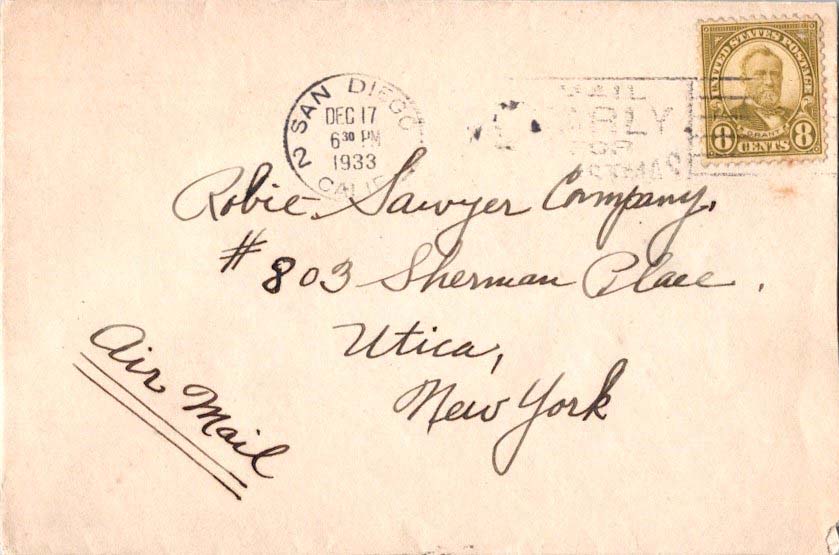 UNITED STATES POSTAGE
GRANT
8 CENTS 8
SAN DIEGO
DEC 17
6 30 PM
1933
2
CALIF
MAIL
EARLY
FOR
Robie Sawyer Company,
# 803 Sherman Place.
Utica,
New York
Air Mail